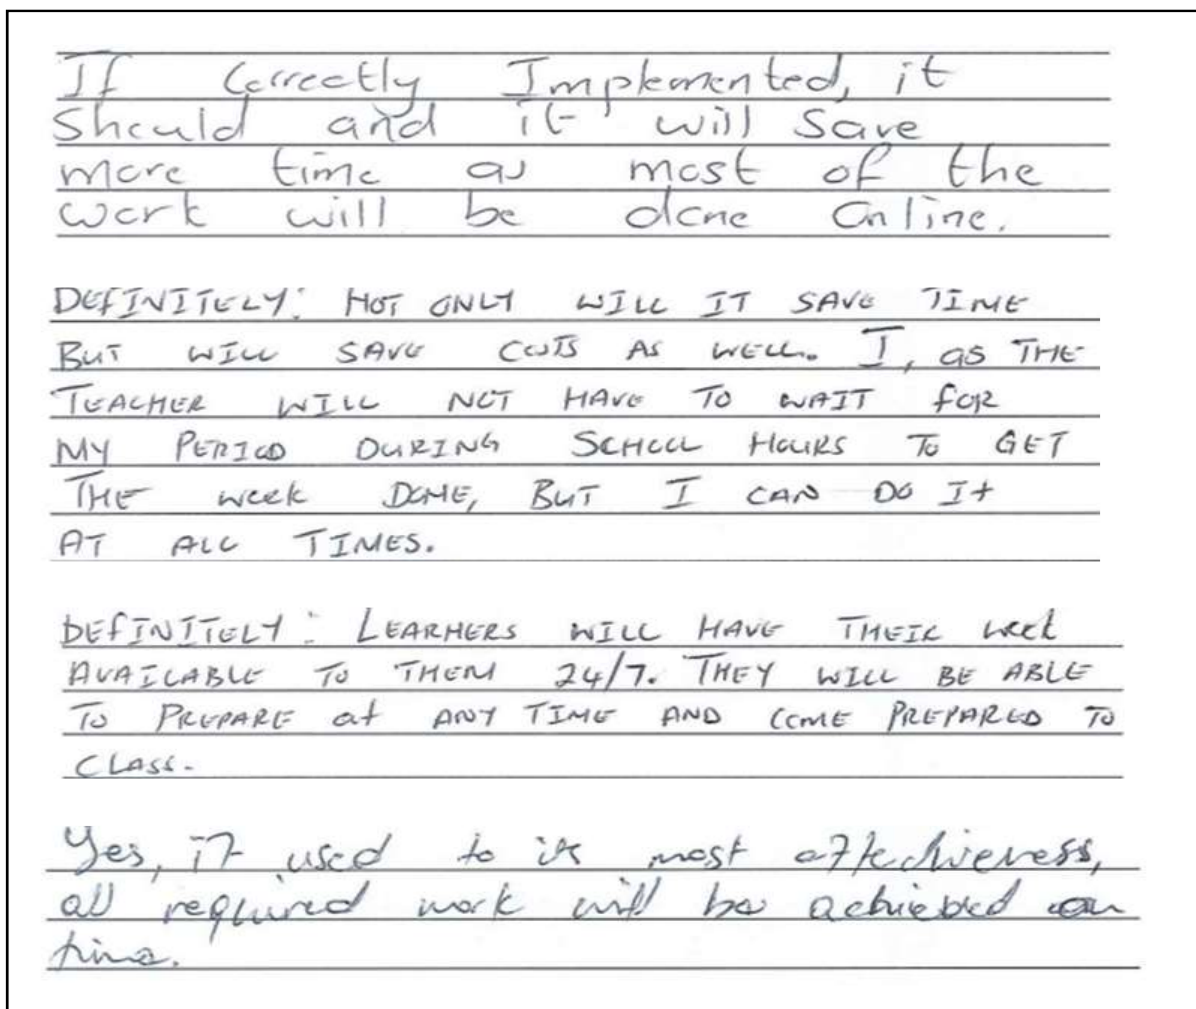 If Correctly Implemented, it
Should and it will save
more time as most of the
work will be done online.
DEFINITELY: NOT ONLY WILL IT SAVE TIME
BUT WILL SAVE COSTS AS WELL. I, as THE
TEACHER WILL NOT HAVE TO WAIT FOR
MY PERIOD DURING SCHOOL HOURS TO GET
THE work DONE, BUT I CAN DO It
AT ALL TIMES.
DEFINITELY: LEARNERS WILL HAVE THEIR work
AVAILABLE TO THEM 24/7. THEY WILL BE ABLE
TO PREPARE at ANY TIME AND COME PREPARED TO
CLASS.
Yes, if used to its most effectiveness,
all required work will be achieved on
time.